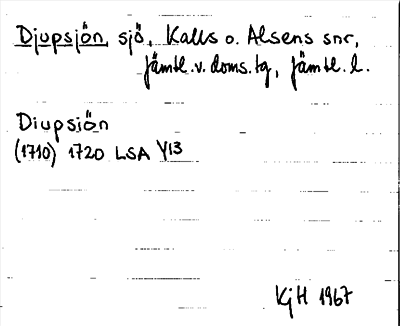 Djupsjön, sjö, Kalls o. Alsens snr,
Jämtl. v. doms. tg, Jämtl. l.
Diupsiön
(1710) 1720 LSA Y13
KjH 1967